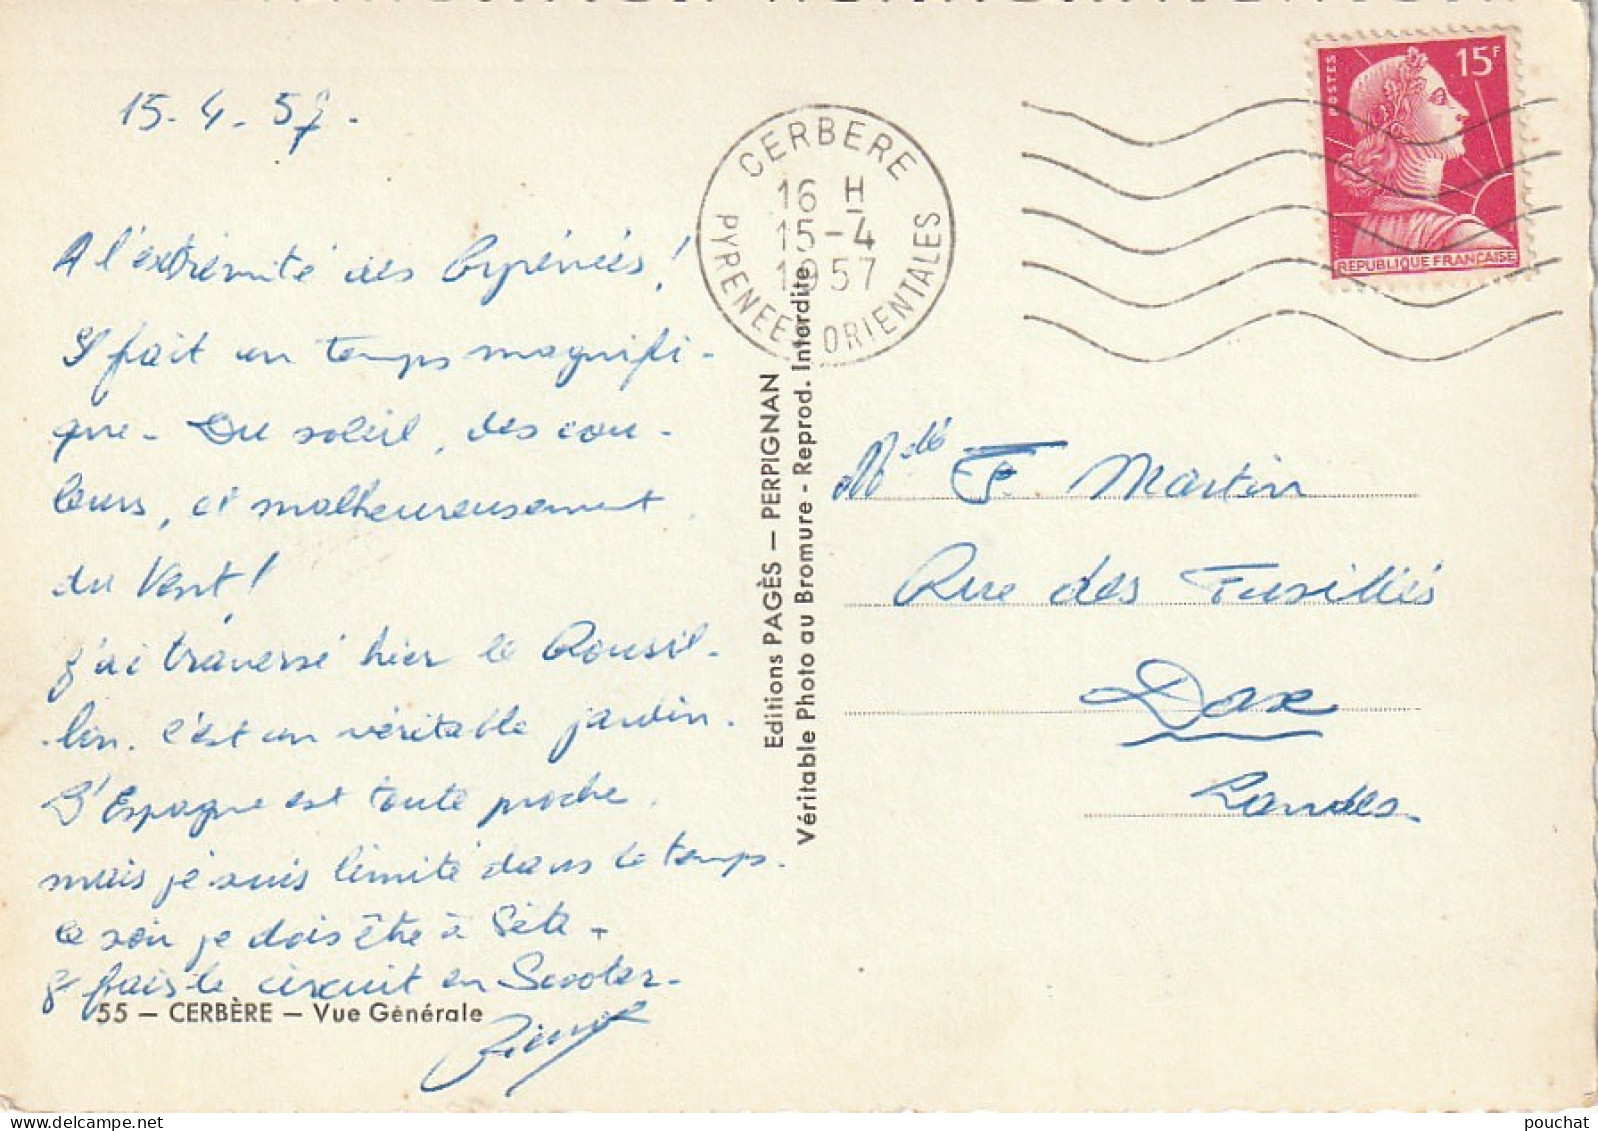 15-4-57.
A l'extrémité des Pyrénées !
Il fait un temps magnifi-
que - Du soleil, des cou-
leurs, et malheureusement
du Vent !
J'ai traversé hier le Roussil-
-lon. C'est un véritable jardin.
L'Espagne est toute proche,
mais je suis limité dans le temps.
Ce soir je dois être à Sète -
Je fais le circuit en Scooter -
Pierre
55 — CERBÈRE — Vue Générale
Editions PAGÈS — PERPIGNAN
Véritable Photo au Bromure - Reprod. Interdite
CERBERE
16 H
15-4
1957
PYRENEES ORIENTALES
POSTES
15F
REPUBLIQUE FRANCAISE
Melle F. Martin
Rue des Fusillés
Dax
Landes
pouchat